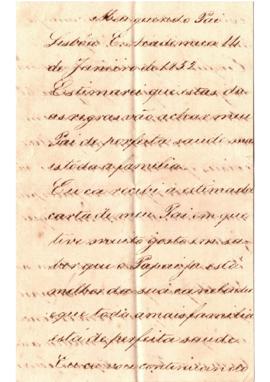 Meu querido Pai
Lisboa Eschola Academica 14
de Janeiro de 1852
Estimarei que estas du
as regras vão achar meu
Pai de perfeita saude mas
e toda a familia
Eu ca recebi a estimada
carta de meu Pai em que
tive muito gosto em sa
ber que o Papa ja está
melhor da sua
e que toda a mais familia
está de perfeita saude
Eu ca vou continuando